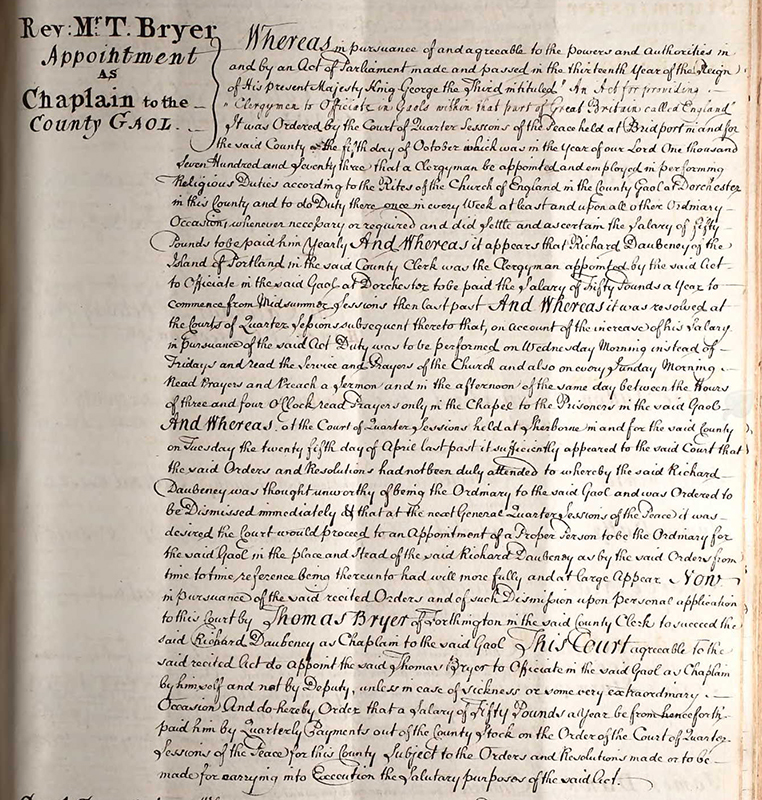 Rev: Mr. T. Bryer
Appointment
AS
Chaplain to the
County GAOL.
Whereas in pursuance of and agreeable to the Powers and Authorities in
and by an Act of Parliament made and passed in the thirteenth Year of the Reign
of His present Majesty King George the Third intituled "An Act for providing
"Clergymen to Officiate in Gaols within that part of Great Britain called England"
It was Ordered by the Court of Quarter Sessions of the Peace held at Bridport in and for
the said County on the fifth day of October which was in the Year of our Lord One thousand
Seven Hundred and Seventy three that a Clergyman be appointed and employed in performing
Religious Duties according to the Rites of the Church of England in the County Gaol at Dorchester
in this County and to do Duty there once in every Week at least and upon all other Ordinary
Occasions whenever necessary or required and did Settle and ascertain the Salary of Fifty
Pounds to be paid him Yearly And Whereas it appears that Richard Daubeney of the
Island of Portland in the said County Clerk was the Clergyman appointed by the said Act
to Officiate in the said Gaol at Dorchester to be paid the Salary of Fifty Pounds a Year to
commence from Midsummer Sessions then last past And Whereas it was resolved at
the Courts of Quarter Sessions subsequent thereto that, on account of the increase of his Salary
in Pursuance of the said Act Duty was to be performed on Wednesday Morning instead of
Fridays and read the Service and Prayers of the Church and also on every Sunday Morning
Read Prayers and Preach a Sermon and in the afternoon of the same day between the Hours
of three and four O'Clock read Prayers only in the Chapel to the Prisoners in the said Gaol
And Whereas at the Court of Quarter Sessions held at Sherborne in and for the said County
on Tuesday the twenty fifth day of April last past it sufficiently appeared to the said Court that
the said Orders and Resolutions had not been duly attended to whereby the said Richard
Daubeney was thought unworthy of being the Ordinary to the said Gaol and was Ordered to
be Dismissed immediately & that at the next General Quarter Sessions of the Peace it was
desired the Court would proceed to an Appointment of a Proper Person to be the Ordinary for
the said Gaol in the place and Stead of the said Richard Daubeney as by the said Orders from
time to time reference being thereunto had will more fully and at large Appear Now
in pursuance of the said recited Orders and of such Dismission upon personal application
to this Court by Thomas Bryer of Forthington in the said County Clerk to succeed the
said Richard Daubeney as Chaplain to the said Gaol This Court agreeable to the
said recited Act do appoint the said Thomas Bryer to Officiate in the said Gaol as Chaplain
by himself and not by Deputy, unless in case of sickness or some very extraordinary
Occasion And do hereby Order that a Salary of Fifty Pounds a Year be from henceforth
paid him by Quarterly Payments out of the County Stock on the Order of the Court of Quarter
Sessions of the Peace for this County Subject to the Orders and Resolutions made or to be
made for carrying into Execution the Salutary purposes of the said Act.